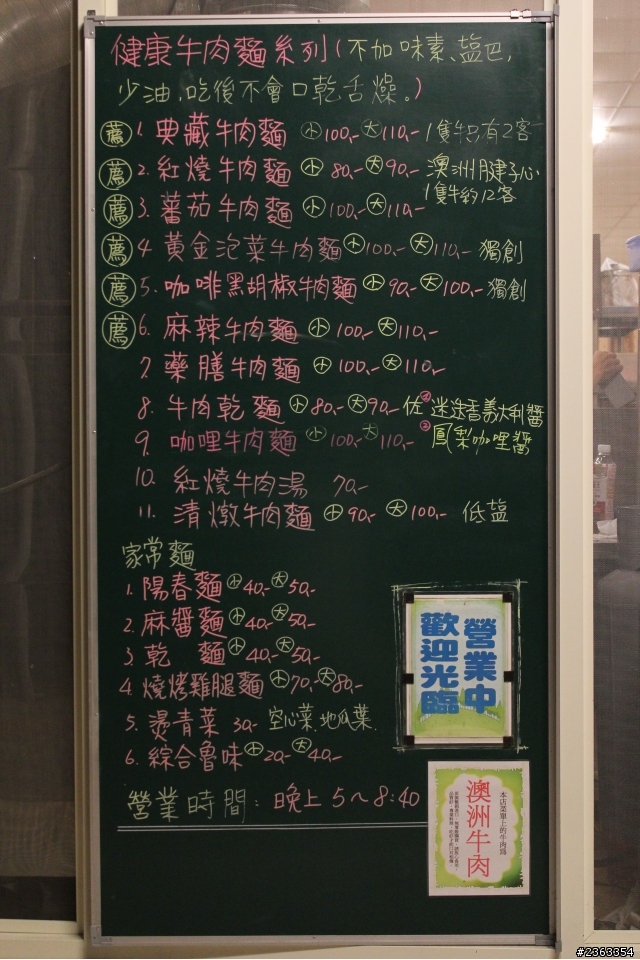 健康牛肉麵系列(不加味素、塩巴,
少油,吃後不會口乾舌燥。)
薦 1. 典藏牛肉麵 小100.- 大110.- 1隻牛只有2客
薦 2. 紅燒牛肉麵 小80.- 大90.- 澳洲腱子心
1隻牛約12客
薦 3. 蕃茄牛肉麵 小100.- 大110.-
薦 4. 黃金泡菜牛肉麵 小100.- 大110.- 獨創
薦 5. 咖啡黑胡椒牛肉麵 小90.- 大100.- 獨創
薦 6. 麻辣牛肉麵 小100.- 大110.-
7. 藥膳牛肉麵 小100.- 大110.-
8. 牛肉乾麵 小80.- 大90.- 佐①迷迭香義大利醬
②鳳梨咖哩醬
9. 咖哩牛肉麵 小100.- 大110.-
10. 紅燒牛肉湯 70.-
11. 清燉牛肉麵 小90.- 大100.- 低塩
家常麵
1. 陽春麵 小40.- 大50.-
2. 麻醬麵 小40.- 大50.-
3. 乾麵 小40.- 大50.-
4. 燒烤雞腿麵 小70.- 大80.-
5. 燙青菜 30.- 空心菜.地瓜葉.
6. 綜合魯味 小20.- 大40.-
營業時間: 晚上 5~8:40
營業中
歡迎光臨
本店菜單上的牛肉為
澳洲牛肉
#2363354